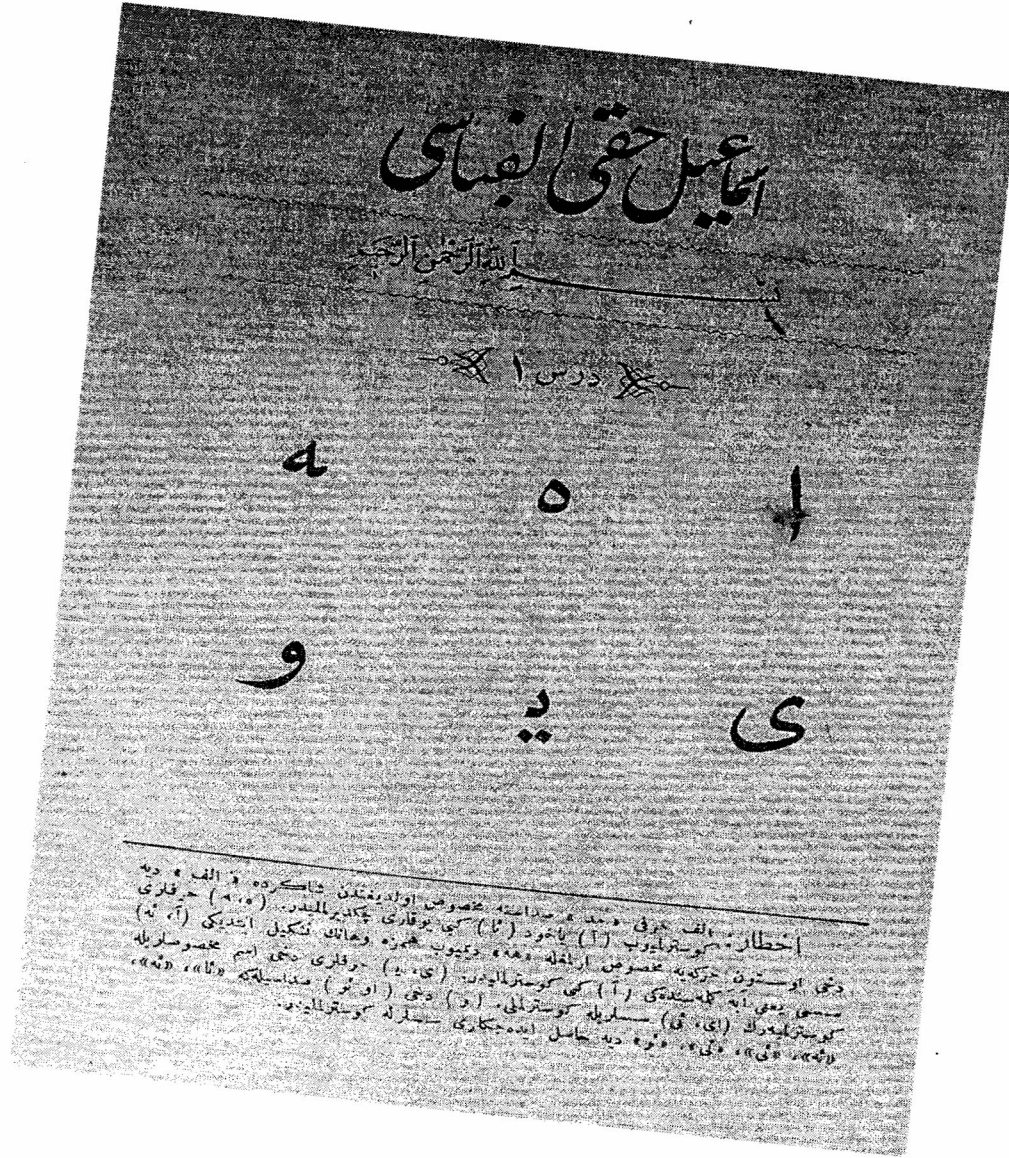 اسماعیل حقی الفباسی
بسم الله الرحمن الرحیم
درس ۱
ا ه ـه
ی یـ و
اخطار: الف حرفی «مد» صداسنه مخصوص اولدیغندن شاكرده «الف» دیه
كوسترلمیوب (آ) یاخود (ئا) كبی یوقاری چكدیرلملیدر. (ه، ـه) حرفلری
دخی اوستون حركه‌یه مخصوص اولمغله «هه» دینمیوب همزه وهانك تشكیل ایتدیكی (أ، ئه)
سسی یعنی ابه كله‌سنده‌كی (أ) كبی كوسترلملیدر. (ی، یـ) حرفلری دخی اسم مخصوصلریله
كوسترلمیه‌رك (ای، ئی) سسلریله كوسترلملی. (و) دخی (او ئو) صداسیله‌كه «ئا»، «ئه»،
«ئه»، «ئی»، «ئی»، «ئو» دیه حاصل ایده‌جكلری سسلرله كوسترلملیدر.